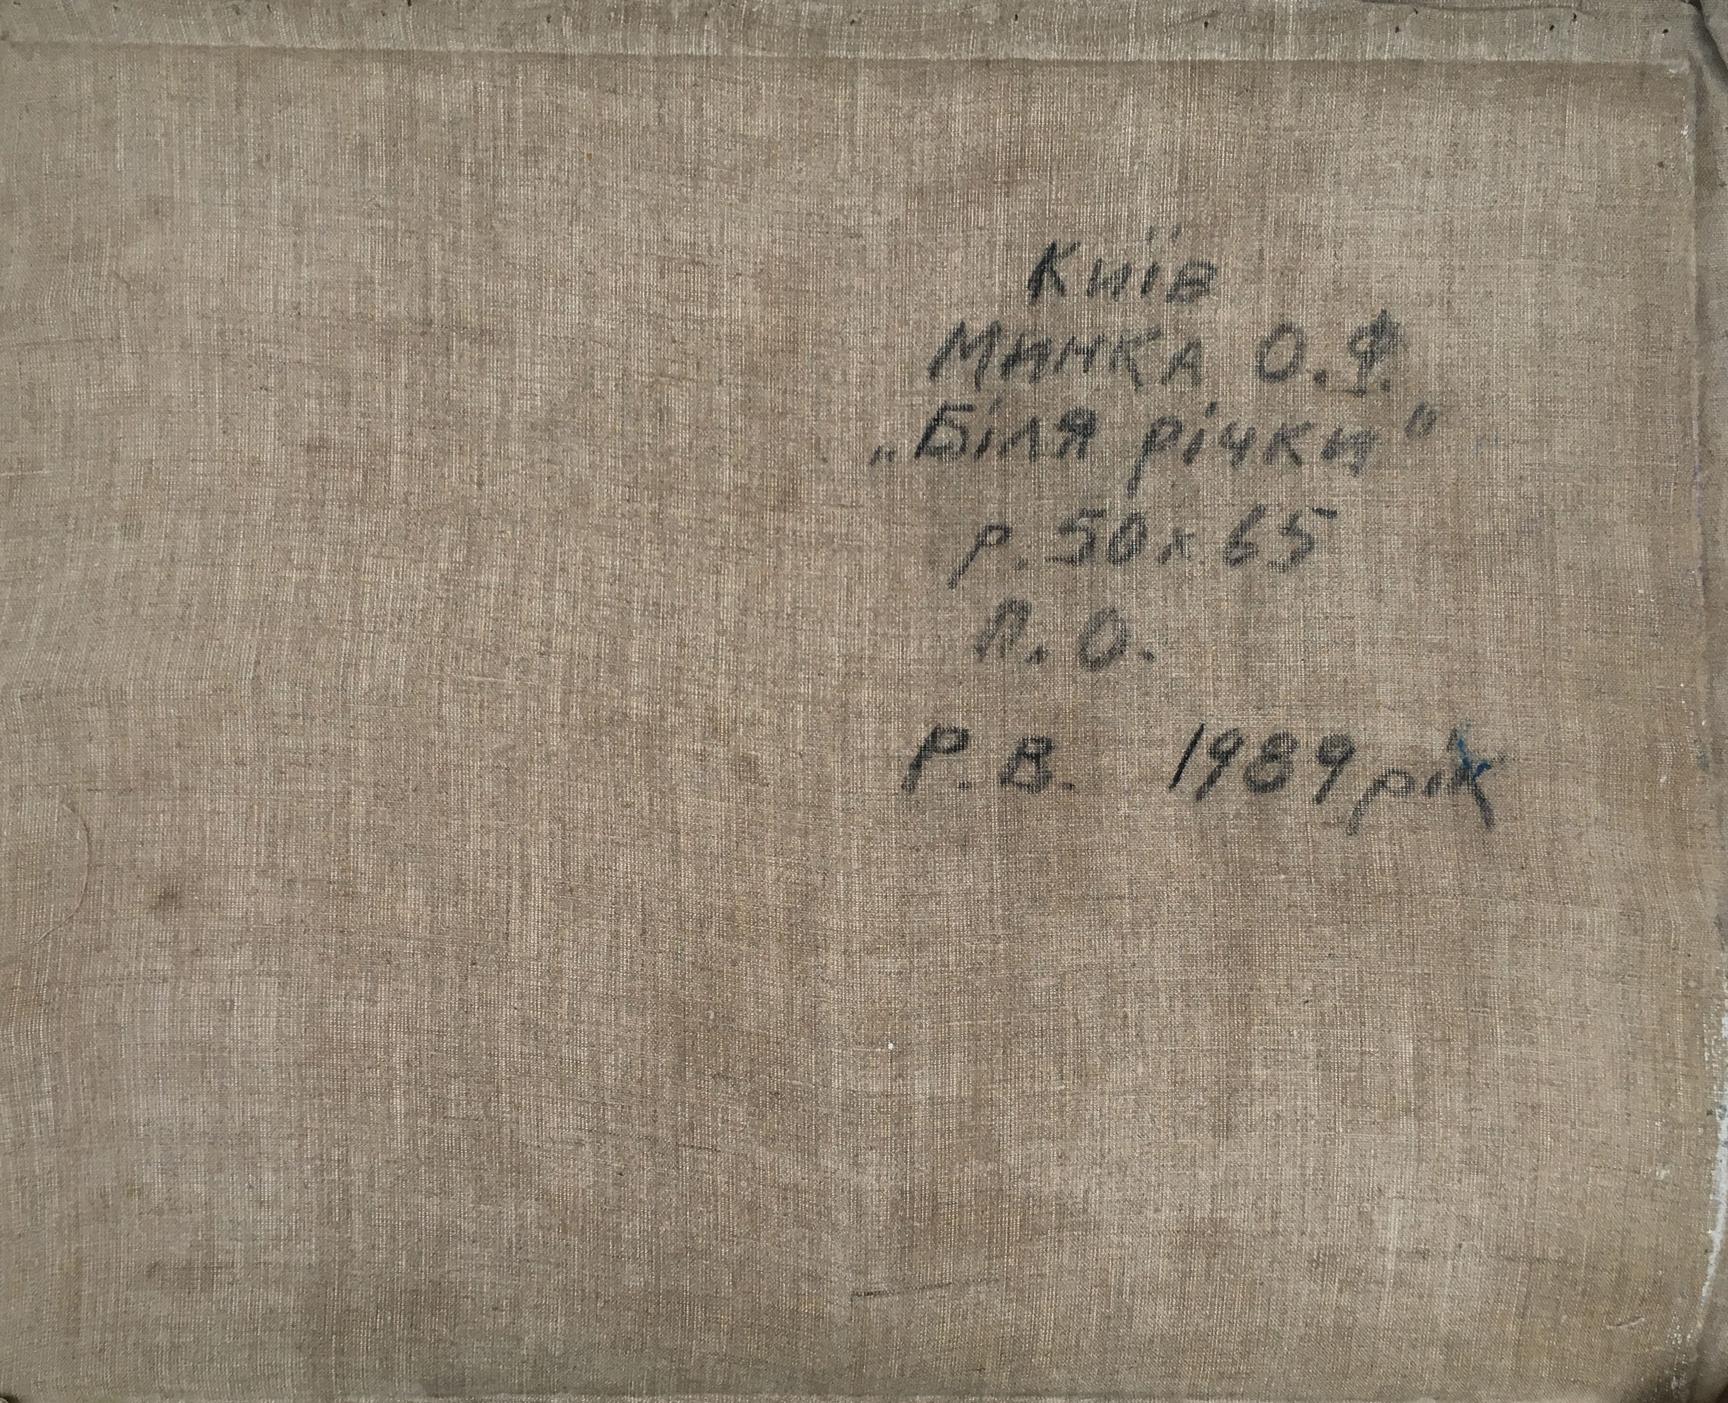 Київ
МАНКА О.Ф.
„Біля річки"
р. 50х65
П. О.
Р. В. 1989 рік